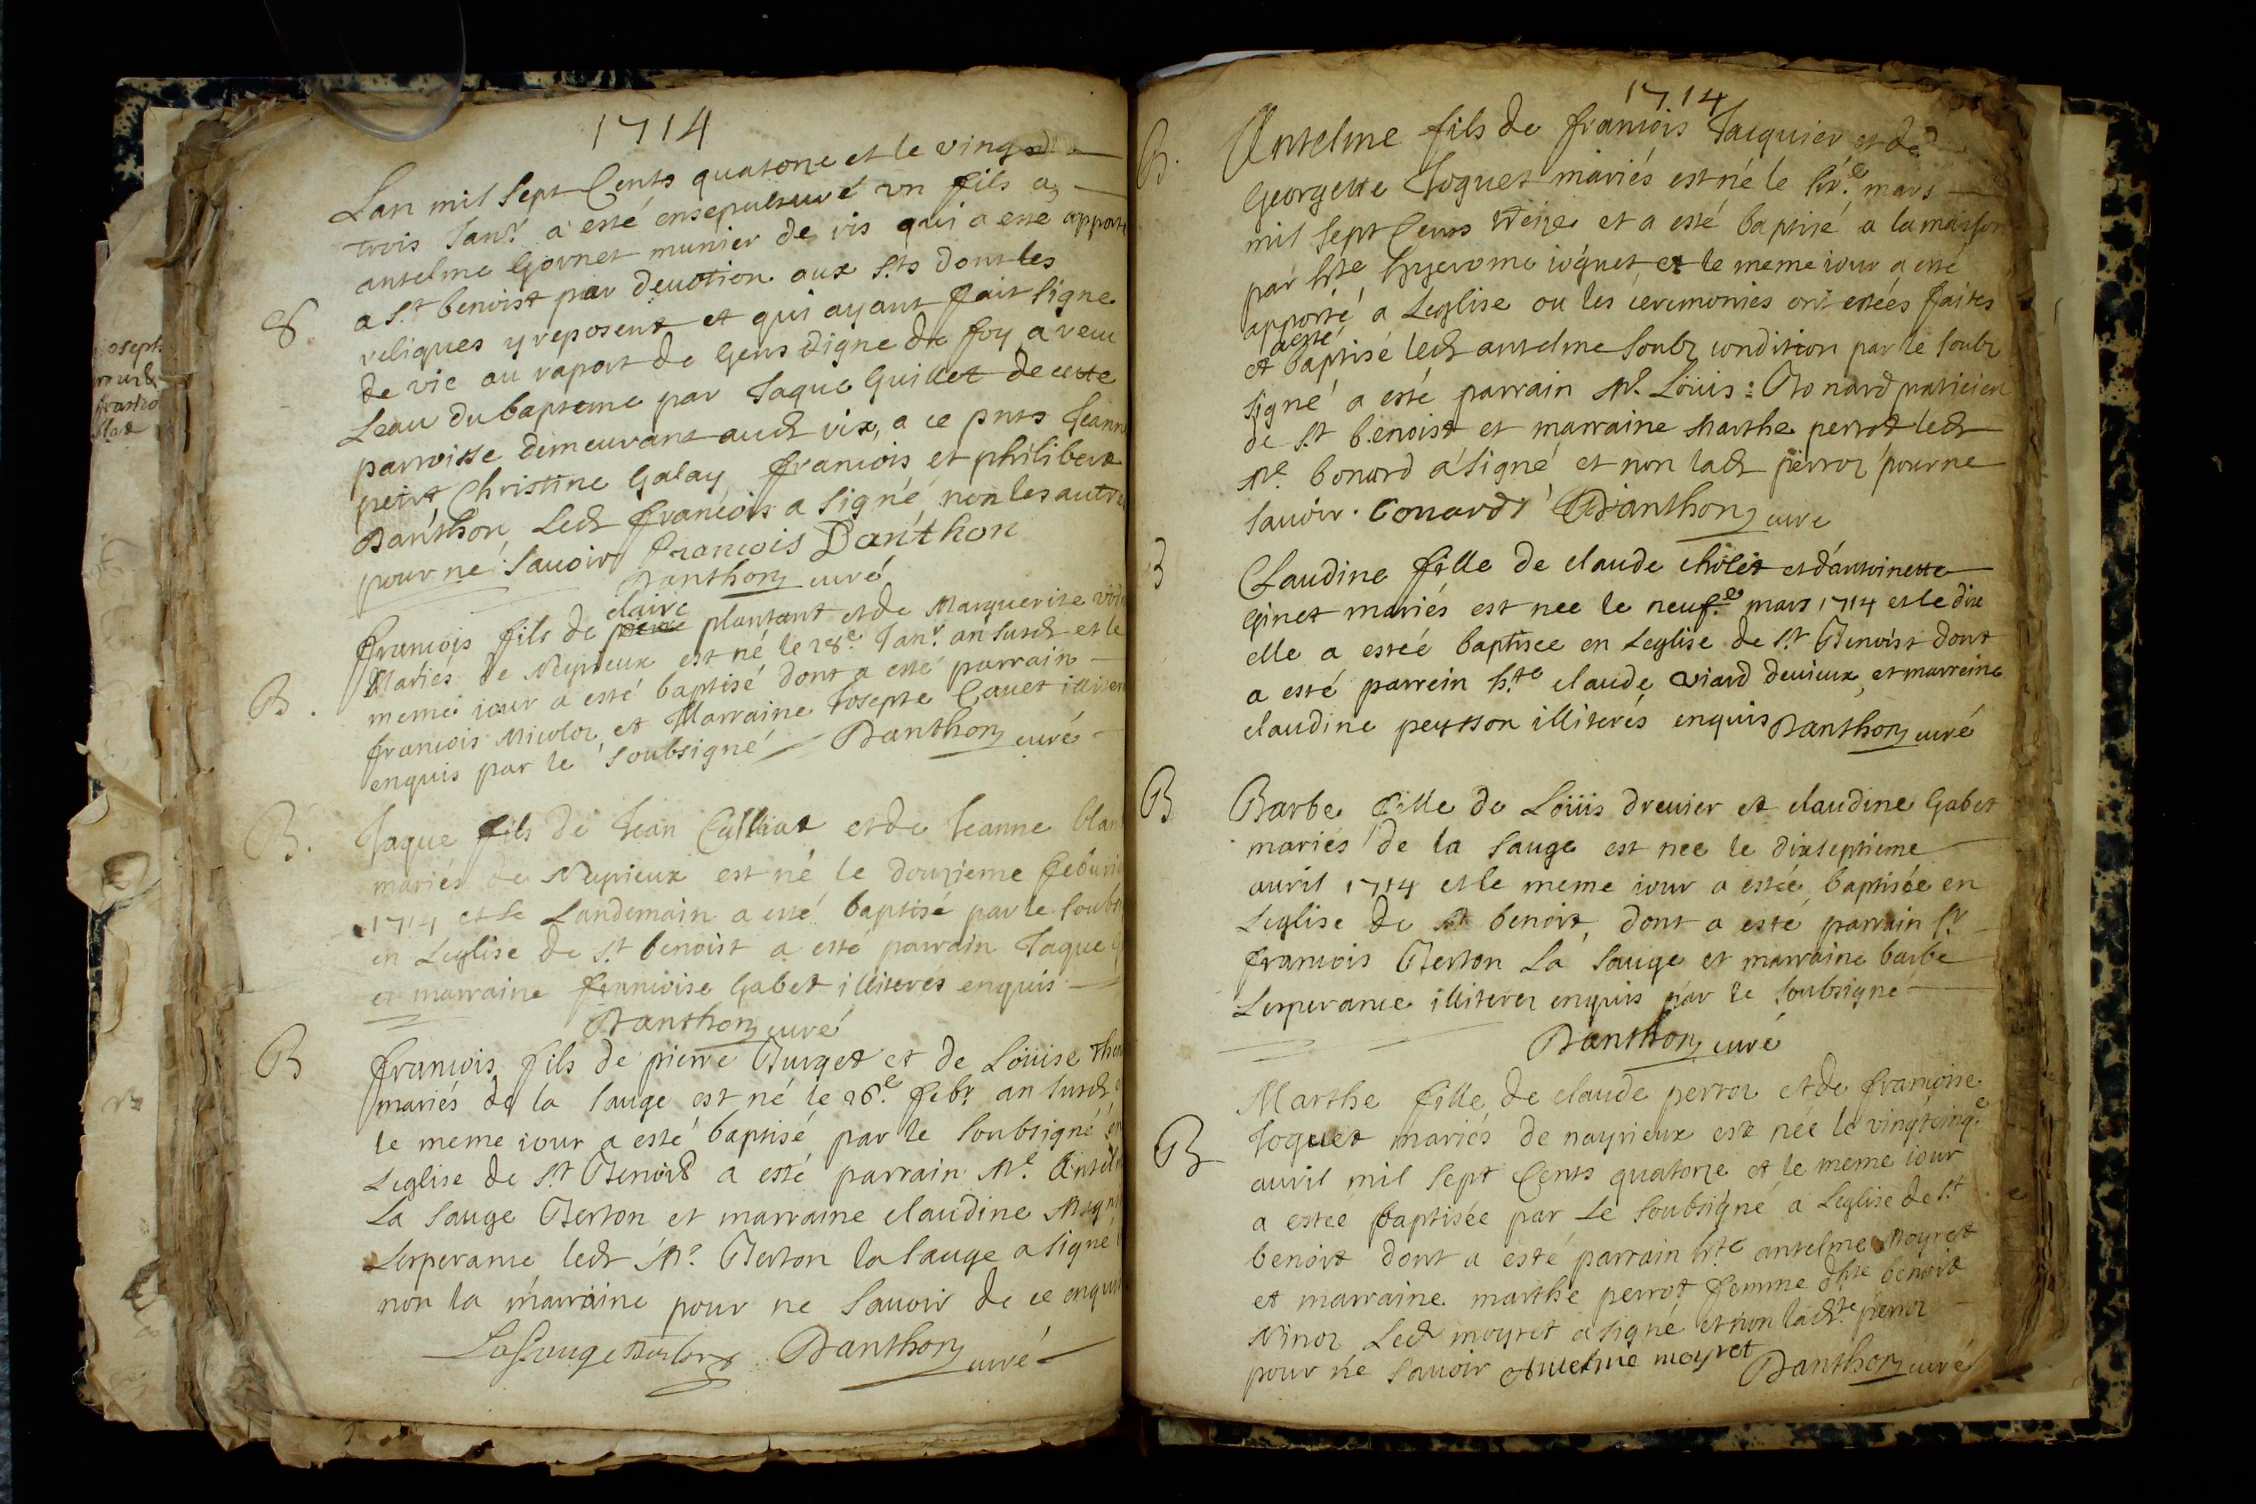 1714
Lan mil Sept Cents quatorze et le vingt
trois Janr. a esté ensepulturé un fils a
antelme Gornet munier de vis qui a esté apporté
a St benoist par deuotion aux Sts dont les
reliques y reposent et qui ayant fait signe
de vie au raport de Gens digne de foy a receu
Leau du bapteme par Jaque Guillet de cette
parroisse demeurant audt vix, a ce pnts Jeanne
petit Christine Galay francois et philibert
Danthon Ledt francois a signé non les autres
pour ne sauoir francois Danthon
Danthon curé
S
claire
francois fils de plantant et de Marguerite
Mariés de Neyrieux est né le 28e Janr. an susdt et le
meme iour a esté baptisé dont a esté parrain
francois Micoloz et Marraine Josepte Cauet
enquis par le soubsigné Danthon curé
B.
Jaque fils de Jean Culliat et de Jeanne
mariés de Neyrieux est né le douzieme
1714 et le Landemain a esté baptisé par le
en Leglise de St benoist a esté parrain Jaque
et marraine francoise Gabet illiterés enquis
Danthon curé
B.
francois fils de pierre Burget et de Loüise
mariés de la sauge est né le 26e febr. an susdt
le meme iour a esté baptisé par le soubsigné en
Leglise de St Benoist a esté parrain Me
La sauge Berton et marraine claudine
Lesperance ledt Me Berton la sauge a signé
non la marraine pour ne sauoir de ce enquis
La Sauge Berton Danthon curé
B
1714
Antelme fils de francois Jacquier et de
Georgette Joguet mariés est né le pr.e mars
mil sept Cens treize et a esté baptisé a la maison
par hte hyerome ioguet et le meme iour a esté
apporté a Leglise ou les ceremonies ont estées faites
a esté
et baptisé ledt antelme soubz condition par le soubz
signé a esté parrain Me Loüis Bonard praticien
de St benoist et marraine Marthe perrot ledt
Me bonard a signé et non ladt perroz pour ne
sauoir. Bonard Danthon curé
B.
Claudine fille de claude cholet et dantoinette
Ginet mariés est nee le neuf.e mars 1714 et le dix
elle a esteé baptisee en Leglise de St Benoist dont
a esté parrein hte claude viard deuieux, et marreine
claudine peysson illiterés enquis Danthon curé
B
Barbe fille de Loüis dreuier et claudine Gabet
mariés de la sauge est nee le dixseptieme
auril 1714 et le meme iour a estée baptisée en
Leglise de St benoit, dont a esté parrain Sr
francois Berton La sauge et marraine barbe
Lesperance illiterez enquis par le soubsigné
Danthon curé
B
Marthe fille de claude perroz et de francoise
Joguet mariés de nayrieux est née le vingtcinq.e
auril mil sept Cents quatorze et le meme iour
a estee baptisée par Le soubsigné a Leglise de St
benoit dont a esté parrain hte antelme Moyret
et marraine marthe perrot femme dhte benoit
Ninoz Ledt moyret a signé et non ladte perroz
pour ne sauoir antelme moyret
Danthon curé
B